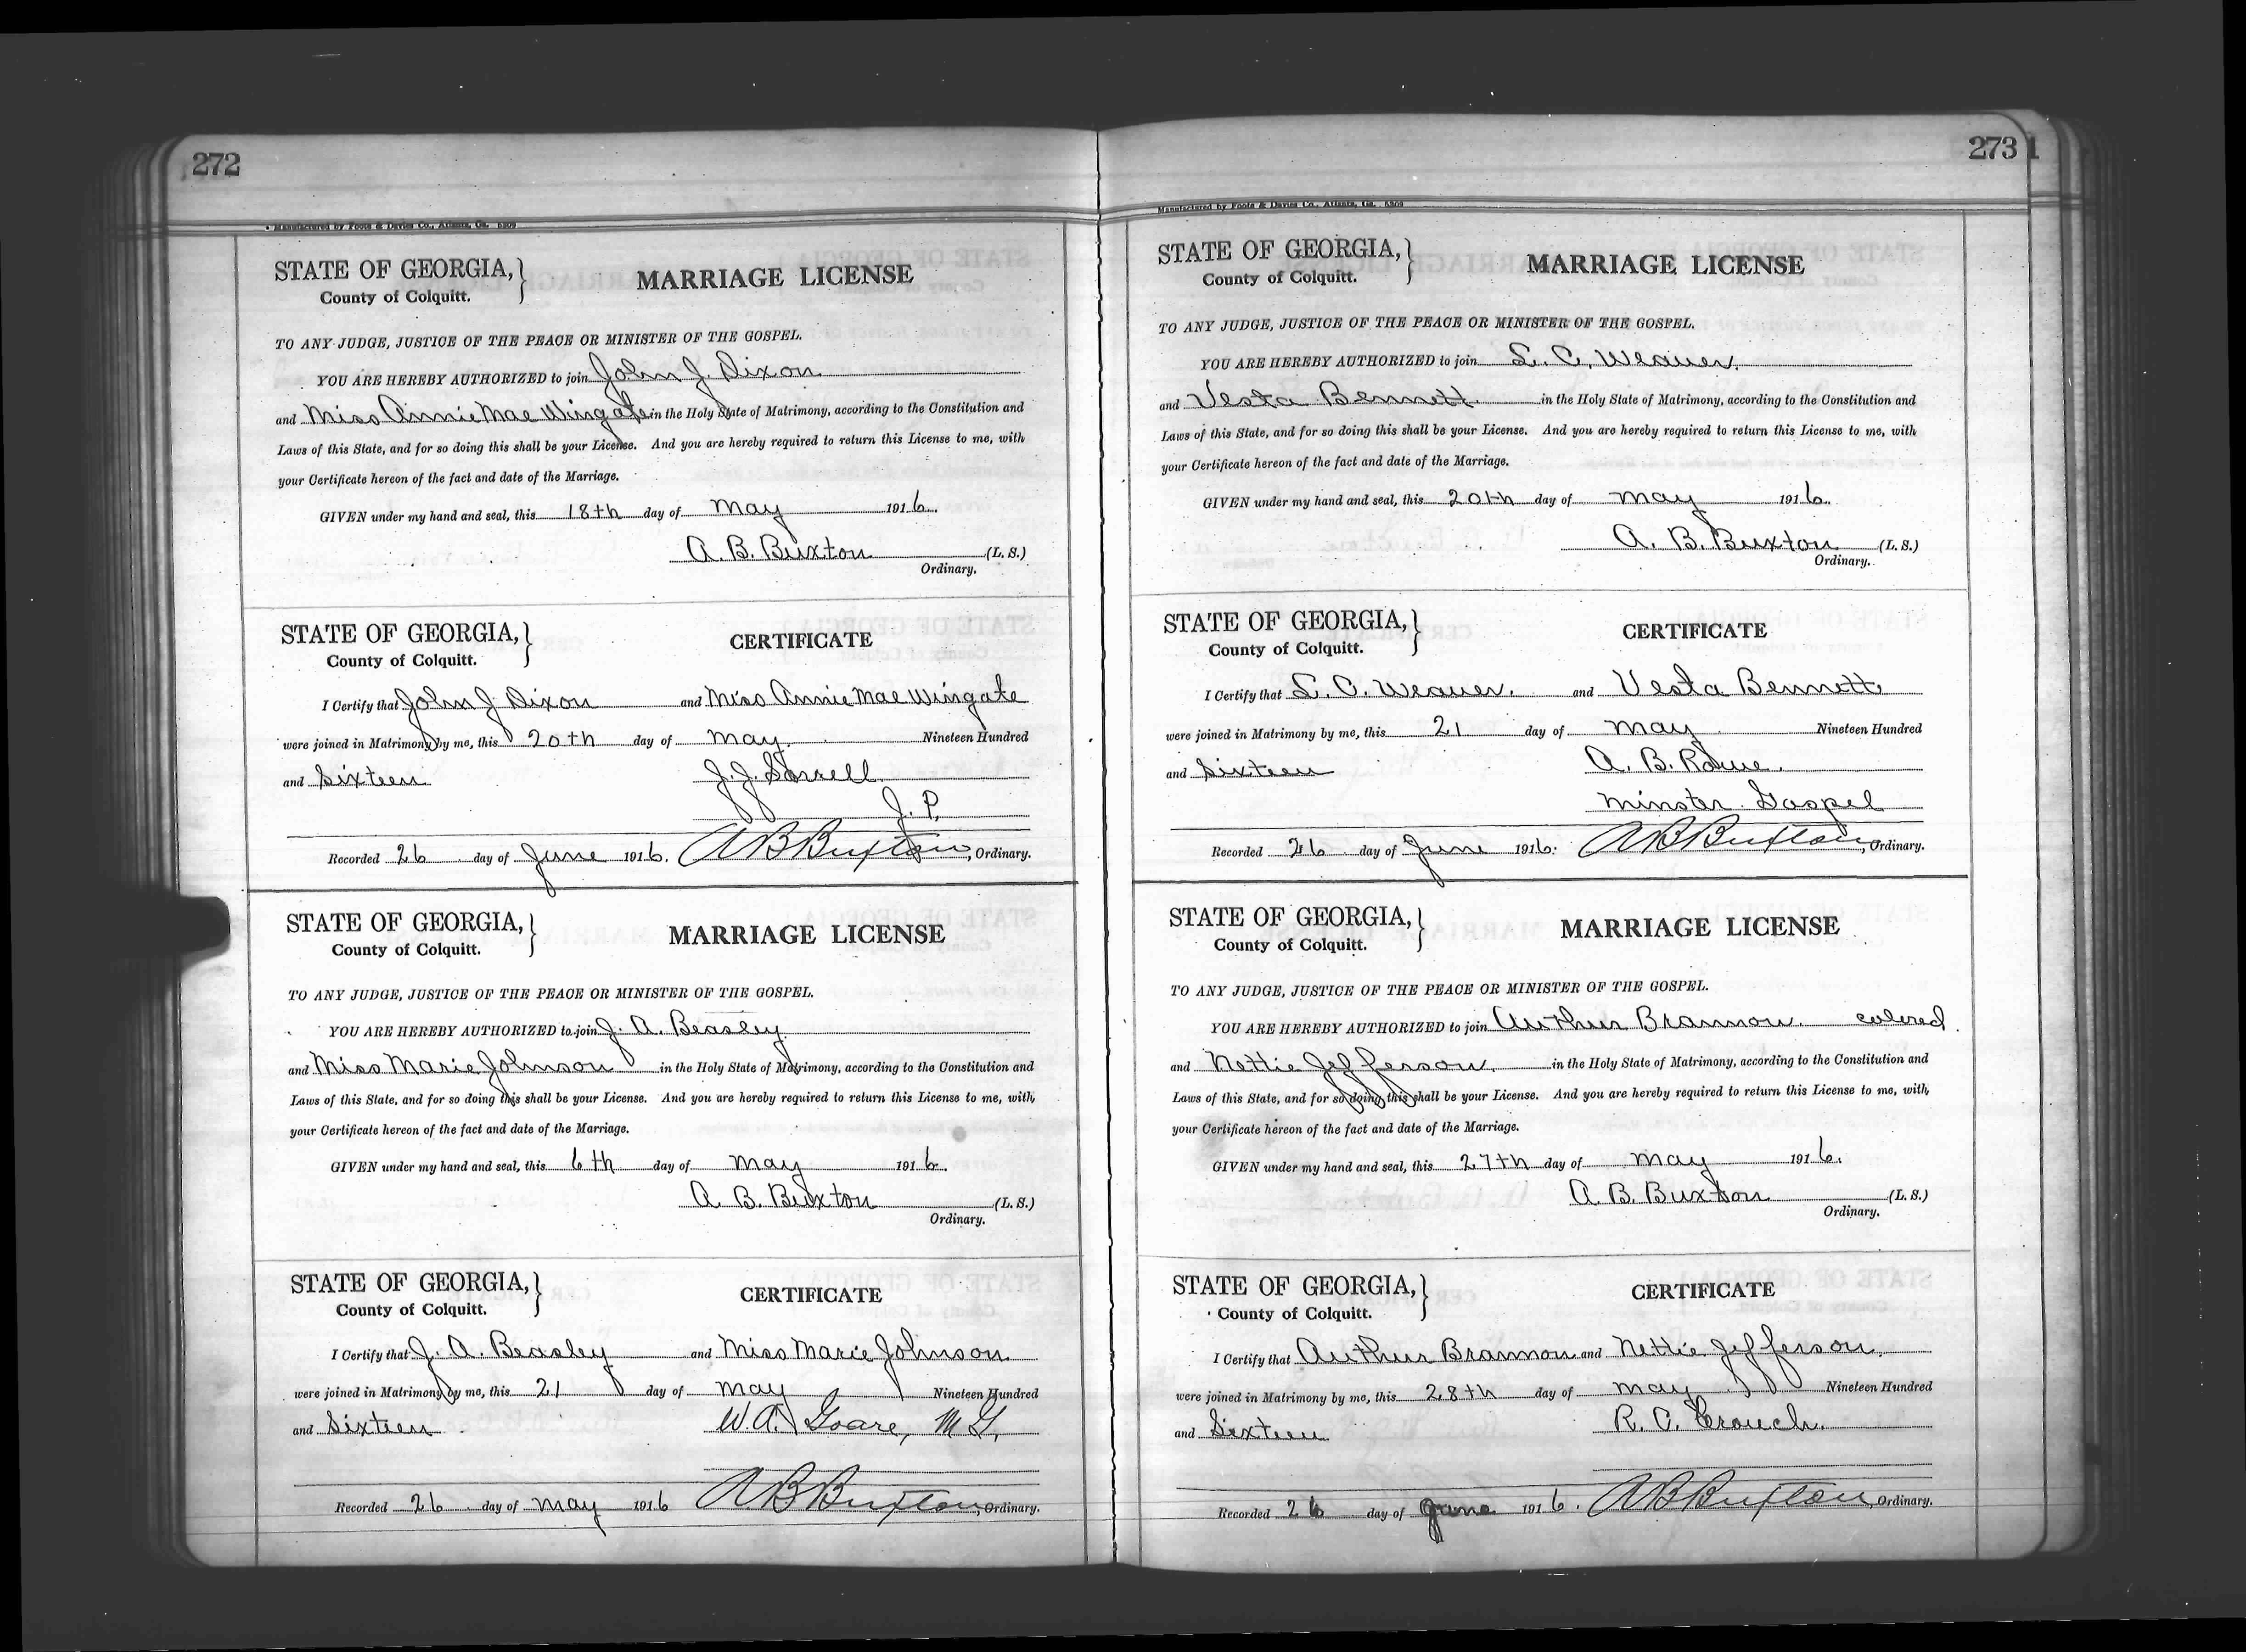 272
Manufactured by Foote & Davies Co., Atlanta, Ga.
STATE OF GEORGIA,
County of Colquitt.
MARRIAGE LICENSE
TO ANY JUDGE, JUSTICE OF THE PEACE OR MINISTER OF THE GOSPEL.
YOU ARE HEREBY AUTHORIZED to join John J. Dixon
and Miss Annie Mae Wingate in the Holy State of Matrimony, according to the Constitution and
Laws of this State, and for so doing this shall be your License. And you are hereby required to return this License to me, with
your Certificate hereon of the fact and date of the Marriage.
GIVEN under my hand and seal, this 18th day of May 1916.
A. B. Buxton (L. S.)
Ordinary.
STATE OF GEORGIA,
County of Colquitt.
CERTIFICATE
I Certify that John J Dixon and Miss Annie Mae Wingate
were joined in Matrimony by me, this 20th day of May. Nineteen Hundred
and Sixteen J. J. Sorrell
J. P.
Recorded 26 day of June 1916. A B Buxton, Ordinary.
STATE OF GEORGIA,
County of Colquitt.
MARRIAGE LICENSE
TO ANY JUDGE, JUSTICE OF THE PEACE OR MINISTER OF THE GOSPEL.
YOU ARE HEREBY AUTHORIZED to join J. A. Beasley
and Miss Marie Johnson in the Holy State of Matrimony, according to the Constitution and
Laws of this State, and for so doing this shall be your License. And you are hereby required to return this License to me, with,
your Certificate hereon of the fact and date of the Marriage.
GIVEN under my hand and seal, this 6th day of May 1916.
A. B. Buxton (L. S.)
Ordinary.
STATE OF GEORGIA,
County of Colquitt.
CERTIFICATE
I Certify that J. A. Beasley and Miss Marie Johnson
were joined in Matrimony by me, this 21 day of May Nineteen Hundred
and Sixteen W. A. Goare, M G,
Recorded 26 day of May 1916 A B Buxton, Ordinary.
273
Manufactured by Foote & Davies Co., Atlanta, Ga.
STATE OF GEORGIA,
County of Colquitt.
MARRIAGE LICENSE
TO ANY JUDGE, JUSTICE OF THE PEACE OR MINISTER OF THE GOSPEL.
YOU ARE HEREBY AUTHORIZED to join L. C. Weaver.
and Vesta Bennett in the Holy State of Matrimony, according to the Constitution and
Laws of this State, and for so doing this shall be your License. And you are hereby required to return this License to me, with
your Certificate hereon of the fact and date of the Marriage.
GIVEN under my hand and seal, this 20th day of May 1916.
A. B. Buxton (L. S.)
Ordinary.
STATE OF GEORGIA,
County of Colquitt.
CERTIFICATE
I Certify that L. C. Weaver. and Vesta Bennett
were joined in Matrimony by me, this 21 day of May Nineteen Hundred
and Sixteen A. B. Rowe.
Minster Gospel
Recorded 26 day of June 1916. A B Buxton, Ordinary.
STATE OF GEORGIA,
County of Colquitt.
MARRIAGE LICENSE
TO ANY JUDGE, JUSTICE OF THE PEACE OR MINISTER OF THE GOSPEL.
YOU ARE HEREBY AUTHORIZED to join Authur Brannon. colored.
and Nettie Jefferson. in the Holy State of Matrimony, according to the Constitution and
Laws of this State, and for so doing this shall be your License. And you are hereby required to return this License to me, with,
your Certificate hereon of the fact and date of the Marriage.
GIVEN under my hand and seal, this 27th day of May 1916.
A. B. Buxton (L. S.)
Ordinary.
STATE OF GEORGIA,
County of Colquitt.
CERTIFICATE
I Certify that Authur Brannon and Nettie Jefferson.
were joined in Matrimony by me, this 28th day of May Nineteen Hundred
and Sixteen R. C. Crouch.
Recorded 26 day of June 1916. A B Buxton, Ordinary.